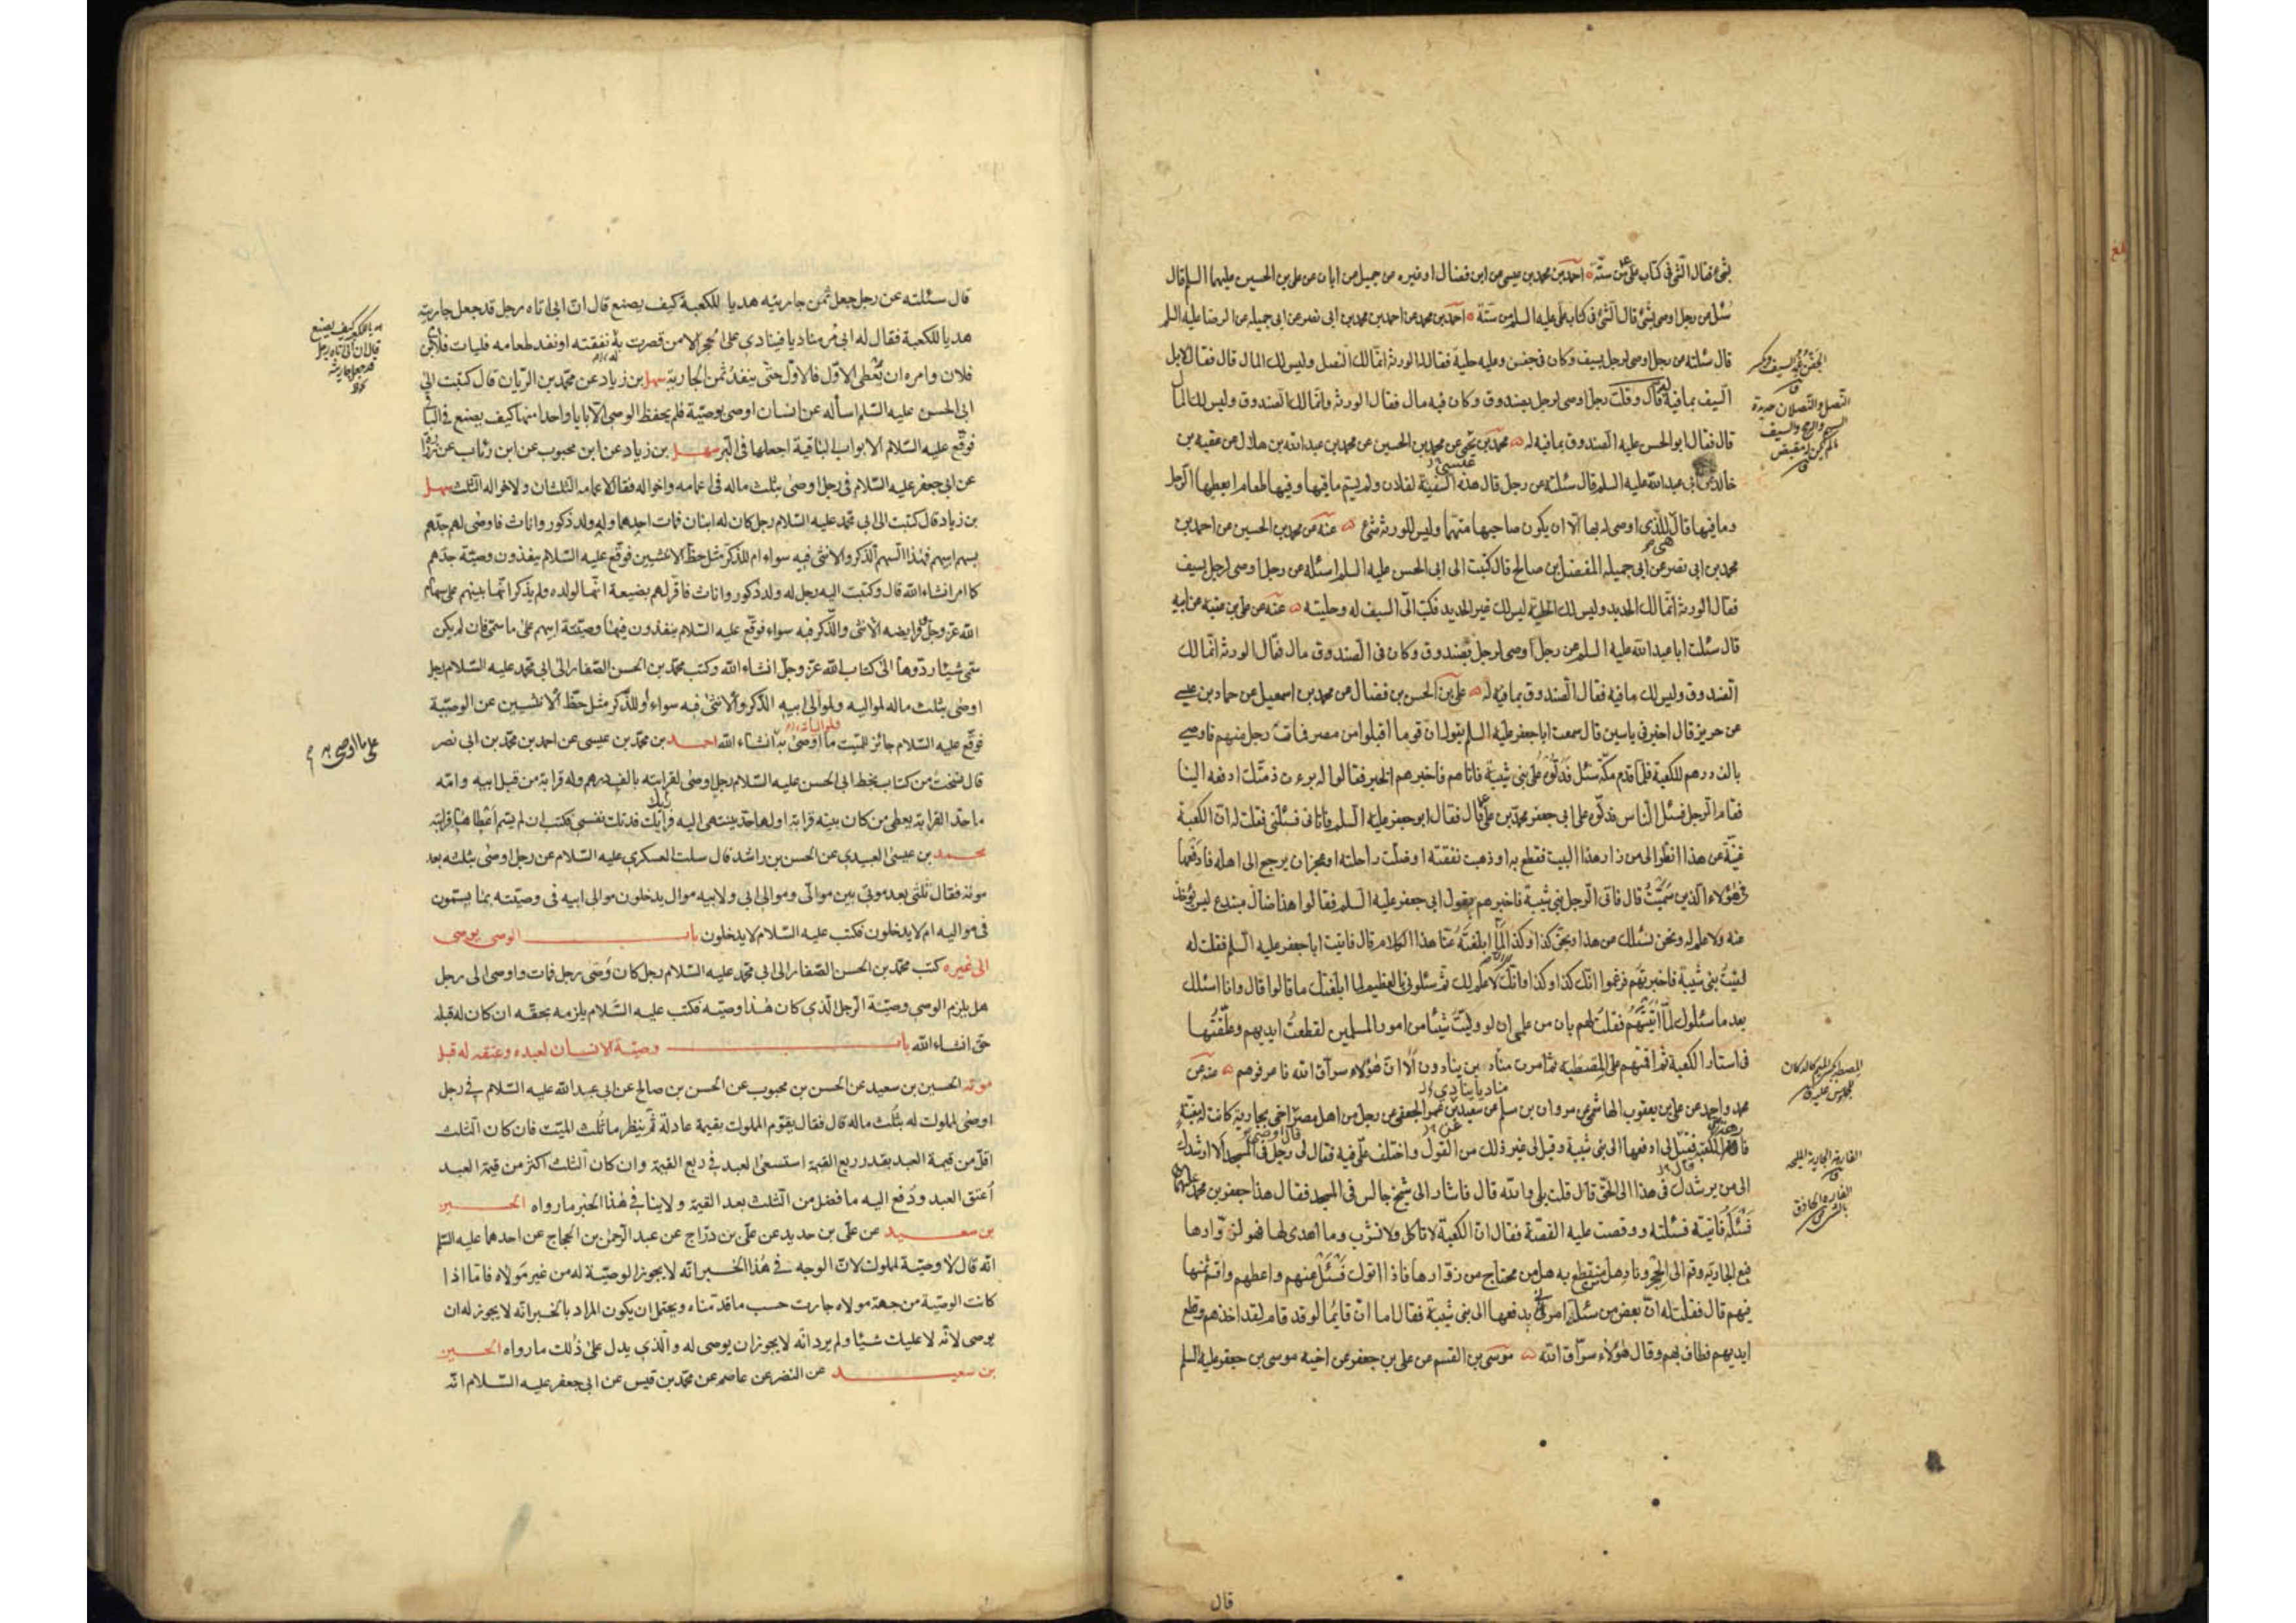 بشئ فقال الشئ فى كتاب على ع من ستة احمد بن محمد بن عيسى عن ابن فضال او غيره عن جميل عن ابان عن على بن الحسين عليهما السلم قال
سئل عن رجل اوصى بشئ قال الشئ فى كتاب على عليه السلم من ستة احمد بن محمد عن احمد بن محمد بن ابى نصر عن ابى جميلة عن الرضا عليه السلم
قال سئلته عن رجل اوصى لرجل بسيف وكان فى جفن وعليه حلية فقال له الورثة انما لك النصل وليس لك المال قال فقال لا بل
السيف بما فيه له قال وقلت رجل اوصى لرجل بصندوق وكان فيه مال فقال الورثة وانما لك الصندوق وليس لك المال
قال فقال ابو الحسن عليه الصندوق بما فيه له محمد بن يحيى عن محمد بن الحسين عن محمد بن عبد الله بن هلال عن عقبة بن
خالد عن ابى عبد الله عليه السلم قال سئلته عن رجل قال هذه السفينة لفلان ولم يسم ما فيها وفيها طعام ايعطيها الرجل
وما فيها قال للذى اوصى له بها الا ان يكون صاحبها متهما وليس للورثة شئ عنه عن محمد بن الحسين عن احمد بن
محمد بن ابى نصر عن ابى جميلة المفضل بن صالح قال كتبت الى ابى الحسن عليه السلم اسئله عن رجل اوصى لرجل بسيف
فقال الورثة انما لك الحديد وليس لك الحلية ليس لك غير الحديد فكتب الى السيف له وحليته عنه عن على بن عقبة عن ابيه
قال سئلت ابا عبد الله عليه السلم عن رجل اوصى لرجل بصندوق وكان فى الصندوق مال فقال الورثة انما لك
الصندوق وليس لك ما فيه فقال الصندوق بما فيه له على بن الحسن بن فضال عن محمد بن اسمعيل عن حماد بن عيسى
عن حريز قال اخبرنى ياسين قال سمعت ابا جعفر عليه السلم يقول ان قوما اقبلوا من مصر فمات رجل منهم فاوصى
بالف درهم للكعبة فلما قدم مكة سئل فدلوه على بنى شيبة فاتاهم فاخبرهم الخبر فقالوا له برءت ذمتك ادفعه الينا
فقام الرجل فسئل الناس فدلوه على ابى جعفر محمد بن على ع قال فقال ابو جعفر عليه السلم فاتانى فسئلنى فقلت له ان الكعبة
غنية عن هذا انظر الى من زار هذا البيت فقطع به او ذهبت نفقته او ضلت راحلته او عجز ان يرجع الى اهله فادفعها
فى هؤلاء الذين سميت قال فاتى الرجل بنى شيبة فاخبرهم بقول ابى جعفر عليه السلم فقالوا هذا ضال مبتدع ليس يؤخذ
عنه ولا علم له ونحن نسئلك عن هذا وبحق كذا وكذا لما ابلغته عنا هذا الكلام قال فاتيت ابا جعفر عليه السلم فقلت له
لقيت بنى شيبة فاخبرتهم فزعموا انك كذا وكذا وانك لا علم لك ثم سئلونى بالعظيم لما ابلغك ما قالوا قال وانا اسئلك
بعد ما سئلوك لما اتيتهم فقلت لهم بان من علمى ان لو وليت شيئا من امور المسلمين لقطعت ايديهم وعلقتها
فى استار الكعبة ثم اقمتهم على المصطبة ثم امرت مناد بن ينادون الا ان هؤلاء سراق الله فاعرفوهم عنه عن
مناديا ينادى
محمد واحمد عن على بن يعقوب الهاشمى عن مروان بن مسلم عن سعيد بن عمر الجعفى عن رجل من اهل مصر اخى بجارية كانت له مغنية
للكعبة فقيل لى ادفعها الى بنى شيبة وقيل لى غير ذلك من القول واختلف على فيه فقال لى رجل فى المسجد الا ارشدك
الى من يرشدك فى هذا الى الحق قال قلت بلى والله قال فاشار الى شيخ جالس فى المسجد فقال هذا جعفر بن محمد عليهما
فسئله فاتيته فسئلته وقصصت عليه القصة فقال ان الكعبة لا تأكل ولا تشرب وما اهدى لها فهو لزوارها
بع الجارية وقم الى الحجر وناد هل منقطع به هل من محتاج من زوارها فاذا اتوك فسئل عنهم واعطهم واقسم ثمنها
فيهم قال فقلت له ان بعض من سئلته امرنى بدفعها الى بنى شيبة فقال اما ان قائمنا لو قد قام لقد اخذهم وقطع
ايديهم فطاف بهم وقال هؤلاء سراق الله موسى بن القسم عن على بن جعفر عن اخيه موسى بن جعفر عليه السلم
قال
الجفن غمد السيف ويكسر ق
النصل والنصلان حديدة
السهم والرمح والسيف
ما لم يكن له مقبض
ق
قال سئلته عن رجل جعل ثمن جاريته هديا للكعبة كيف يصنع قال ان ابى اتاه رجل قد جعل جاريته
هديا للكعبة فقال له ابى مر مناديا فينادى على الحجر الا من قصرت به نفقته او نفد طعامه فليات فلان بن
فلان وامره ان يعطى الاول فالاول حتى ينفد ثمن الجارية سهل بن زياد عن محمد بن الريان قال كتبت الى
ابى الحسن عليه السلم اسأله عن انسان اوصى بوصية فلم يحفظ الوصى الا بابا واحدا منها كيف يصنع فى الباقى
فوقع عليه السلام الابواب الباقية اجعلها فى البر سهل بن زياد عن ابن محبوب عن ابن رئاب عن زرارة
عن ابى جعفر عليه السلام فى رجل اوصى بثلث ماله فى اعمامه واخواله فقال لاعمامه الثلثان ولاخواله الثلث سهل
بن زياد قال كتبت الى ابى محمد عليه السلام رجل كان له ابنان فمات احدهما وله ولد ذكور واناث فاوصى لهم جدهم
بسهم ابيهم فهذا السهم الذكر والانثى فيه سواء ام للذكر مثل حظ الانثيين فوقع عليه السلام ينفذون وصية جدهم
كما امر انشاء الله قال وكتبت اليه رجل له ولد ذكور واناث فاقر لهم بضيعة انها لولده ولم يذكر انها بينهم على سهام
الله عز وجل وفرايضه الانثى والذكر فيه سواء فوقع عليه السلام ينفذون فيها وصية ابيهم على ما سمى فان لم يكن
سمى شيئا ردوها الى كتاب الله عز وجل انشاء الله وكتب محمد بن الحسن الصفار الى ابى محمد عليه السلام رجل
اوصى بثلث ماله لمواليه ولموالى ابيه الذكر والانثى فيه سواء او للذكر مثل حظ الانثيين عن الوصية
فوقع عليه السلام جائز للميت ما اوصى به انشاء الله احمد بن محمد بن عيسى عن احمد بن محمد بن ابى نصر
قال نسخت من كتاب بخط ابى الحسن عليه السلام رجل اوصى لقرابته بالف درهم وله قرابة من قبل ابيه وامه
ما حد القرابة يعطى من كان بينه قرابة او لها حد ينتهى اليه رأيك فدتك نفسى فكتب ان لم يسم اعطاها قرابته
محمد بن عيسى العبيدى عن الحسن بن راشد قال سلت العسكرى عليه السلام عن رجل اوصى بثلثه بعد
موته فقال ثلثى بعد موتى بين موالى وموالى ابى ولابيه موال يدخلون موالى ابيه فى وصيته بما يسمون
فى مواليه ام لا يدخلون فكتب عليه السلام لا يدخلون باب الوصى يوصى
الى غيره كتب محمد بن الحسن الصفار الى ابى محمد عليه السلام رجل كان وصى رجل فمات واوصى الى رجل
هل يلزم الوصى وصية الرجل الذى كان هذا وصيه فكتب عليه السلام يلزمه بحقه ان كان له قبله
حق انشاء الله باب وصية الانسان لعبده وعتقه له قبل
موته الحسين بن سعيد عن الحسن بن محبوب عن الحسن بن صالح عن ابى عبد الله عليه السلام فى رجل
اوصى لمملوك له بثلث ماله قال فقال يقوم المملوك بقيمة عادلة ثم ينظر ما ثلث الميت فان كان الثلث
اقل من قيمة العبد بقدر ربع القيمة استسعى العبد فى ربع القيمة وان كان الثلث اكثر من قيمة العبد
اعتق العبد ودفع اليه ما فضل من الثلث بعد القيمة ولا ينافى هذا الخبر ما رواه الحسين
بن سعيد عن على بن حديد عن على بن دراج عن عبد الرحمن بن الحجاج عن احدهما عليه السلم
انه قال لا وصية لمملوك لان الوجه فى هذا الخبر انه لا يجوز الوصية له من غير مولاه فاما اذا
كانت الوصية من جهة مولاه جازت حسب ما قدمناه ويحتمل ان يكون المراد بالخبر انه لا يجوز له ان
يوصى لانه لا يملك شيئا ولم يرد انه لا يجوز ان يوصى له والذى يدل على ذلك ما رواه الحسين
بن سعيد عن النضر عن عاصم عن محمد بن قيس عن ابى جعفر عليه السلام انه
على ما اوصى به